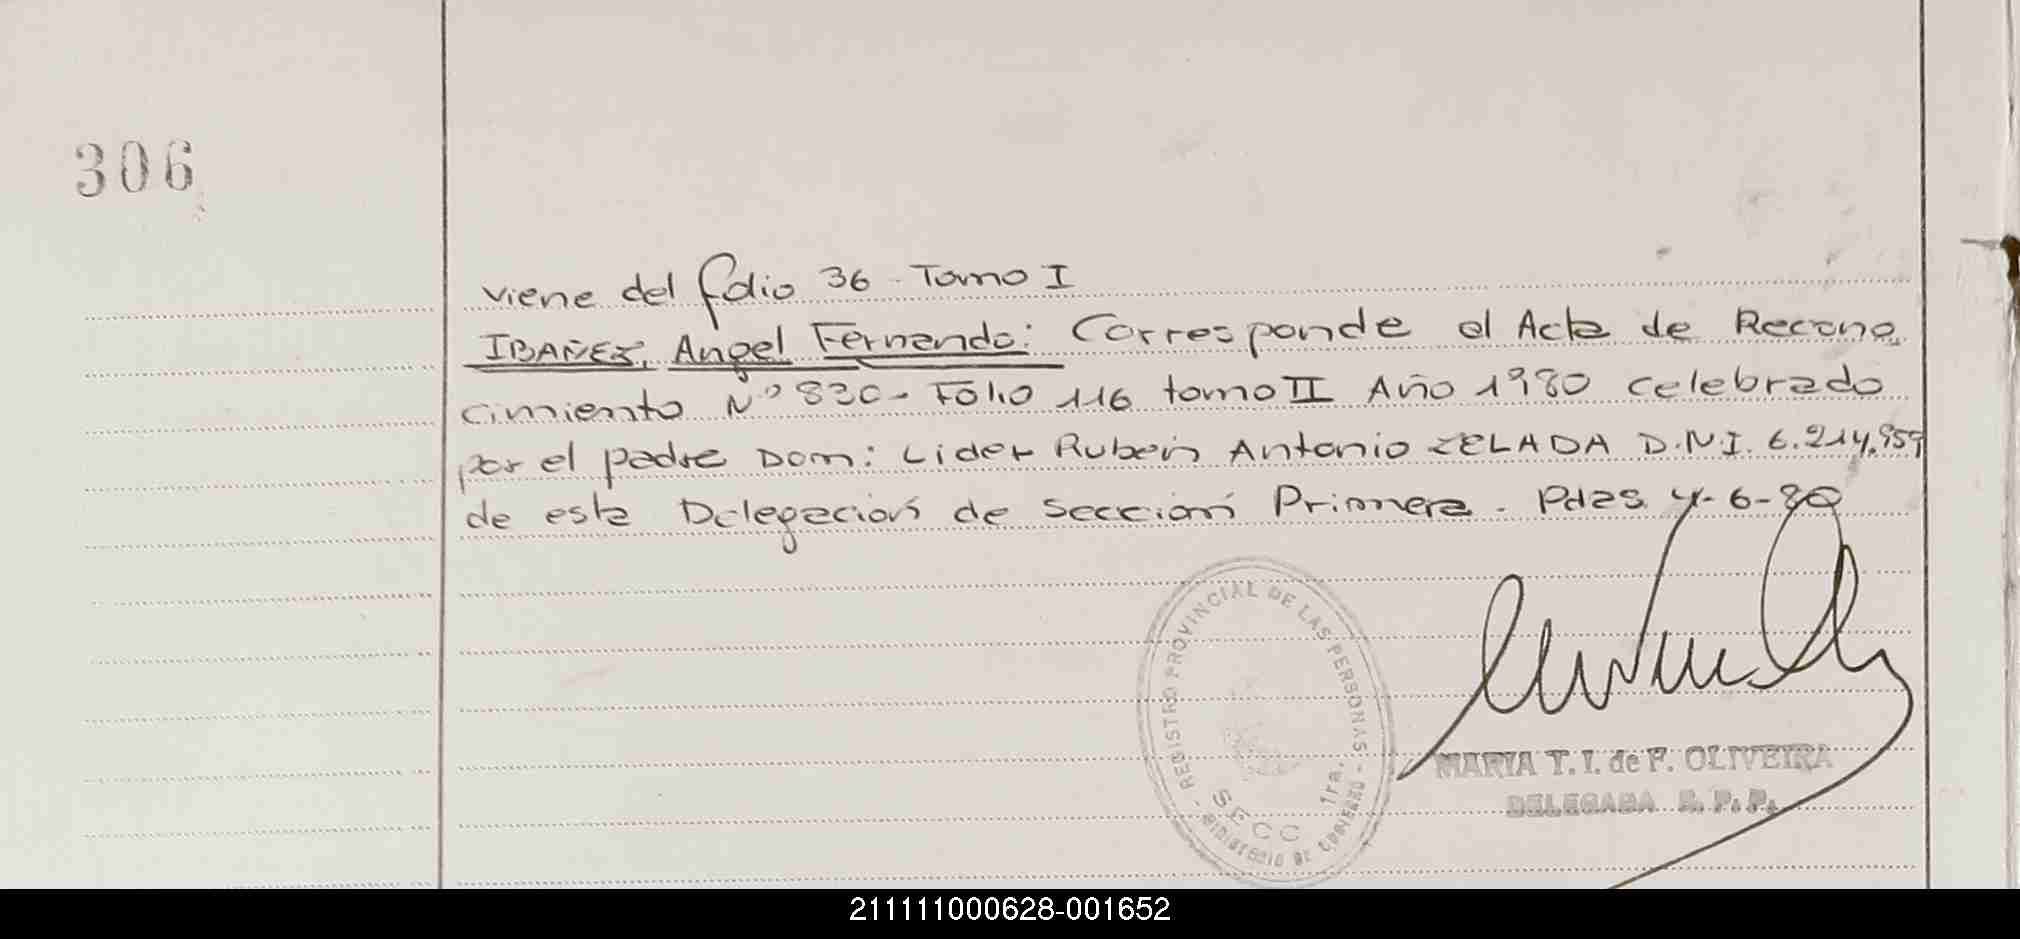 306
Viene del folio 36 - Tomo I
IBAÑEZ, Angel Fernando: Corresponde al Acta de Recono
cimiento Nº 830 - Folio 116 tomo II Año 1980 celebrado
por el padre Dom: Lider Rubén Antonio ZELADA D.N.I. 6.214.959
de esta Delegación de Sección Primera. Pdas 4-6-80
- REGISTRO PROVINCIAL DE LAS PERSONAS -
MINISTERIO DE GOBIERNO
SECC 1ra.
MARIA T. I. de F. OLIVEIRA
DELEGADA R. P. P.
211111000628-001652